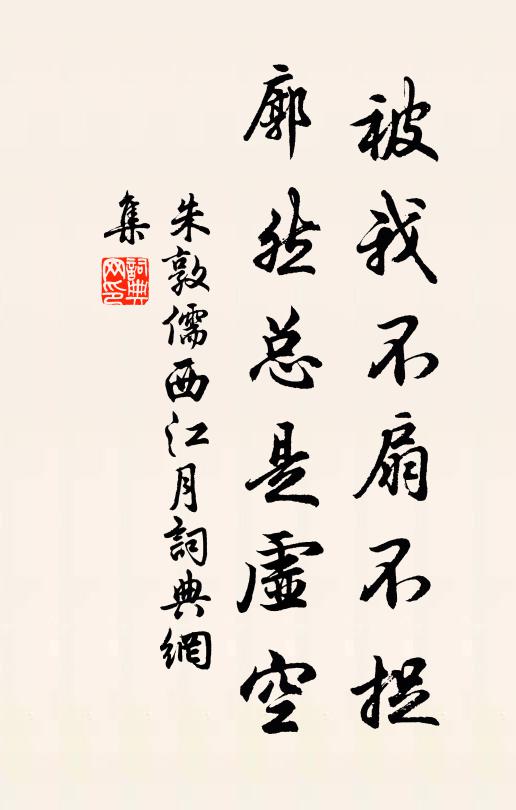 被我不扇不捉
廓然总是虛空
朱敦儒西江月詞典網
集
詞典
网印